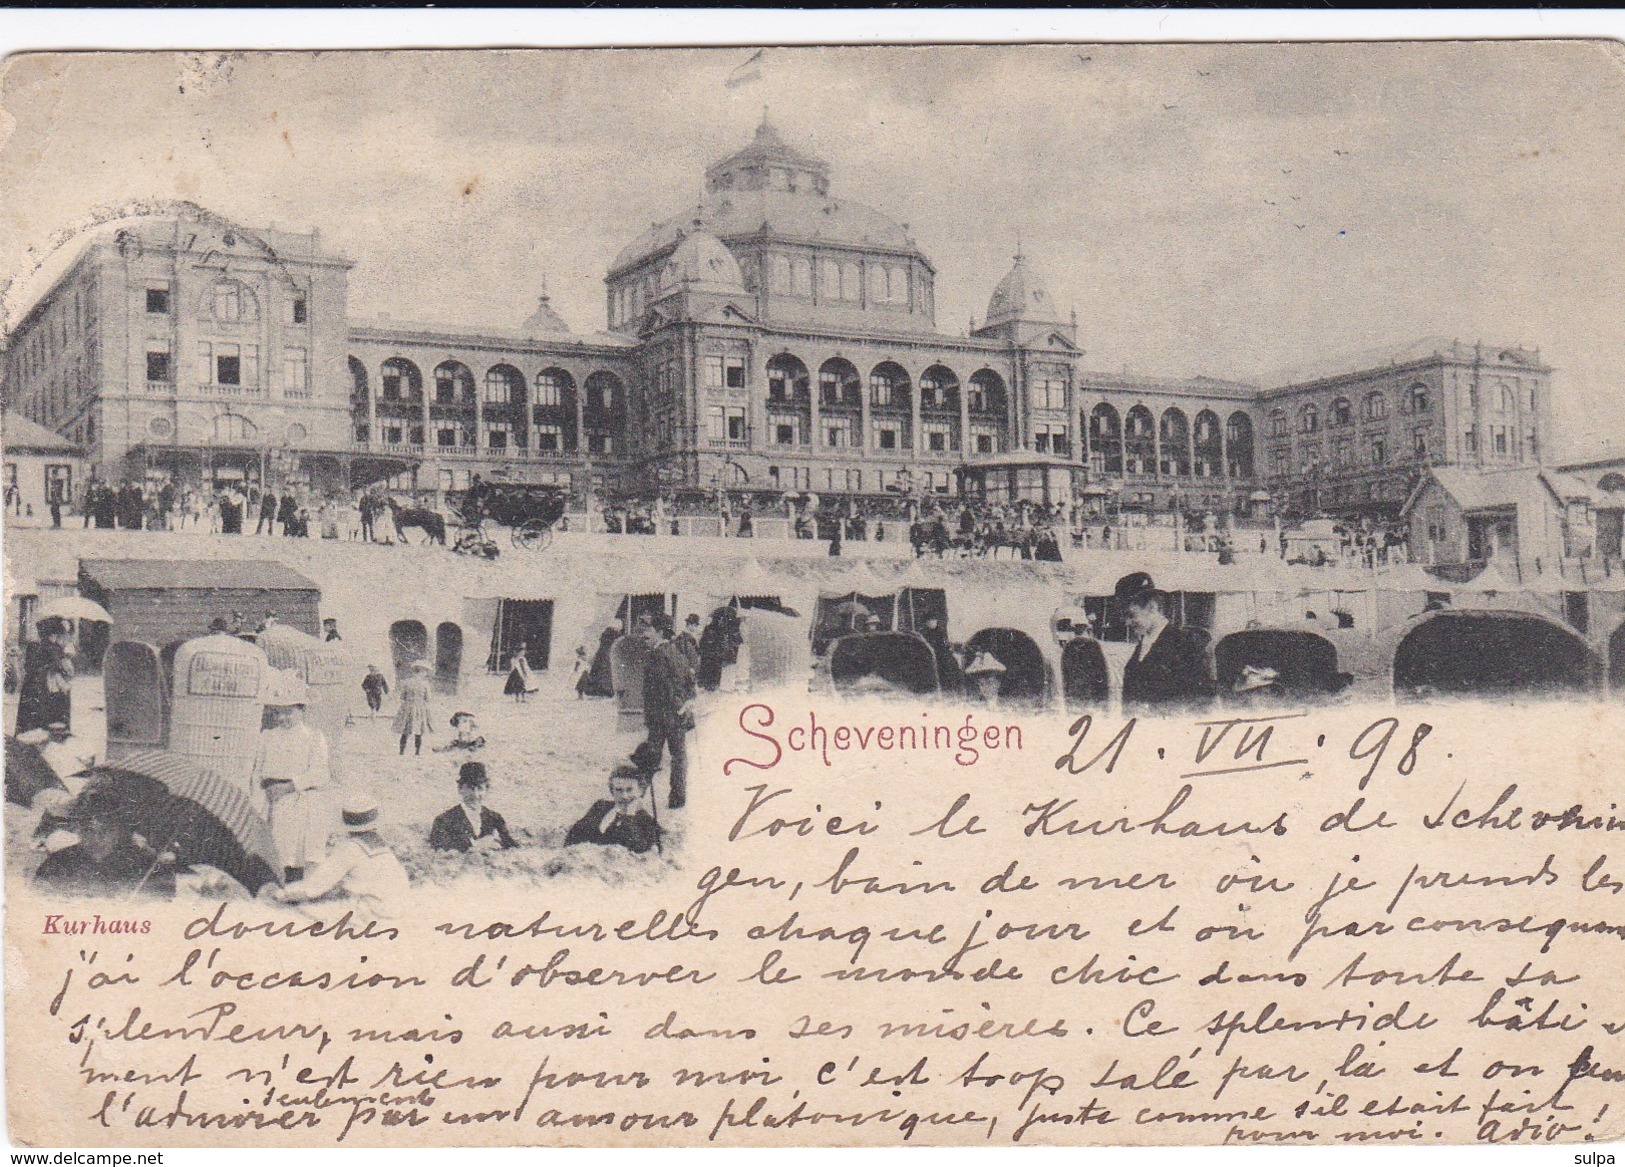 Scheveningen 21. VII. 98.
Voici le Kurhaus de Schevenin
gen, bain de mer où je prends les
Kurhaus douches naturelles chaque jour et où par consequent
j'ai l'occasion d'observer le monde chic dans toute sa
splendeur, mais aussi dans ses misères. Ce splendide bâti
ment n'est rien pour moi, c'est trop salé par là et on peut
seulement
l'admirer par un amour platonique, juste comme s'il etait fait
pour moi. Adio!
www.delcampe.net
sulpa